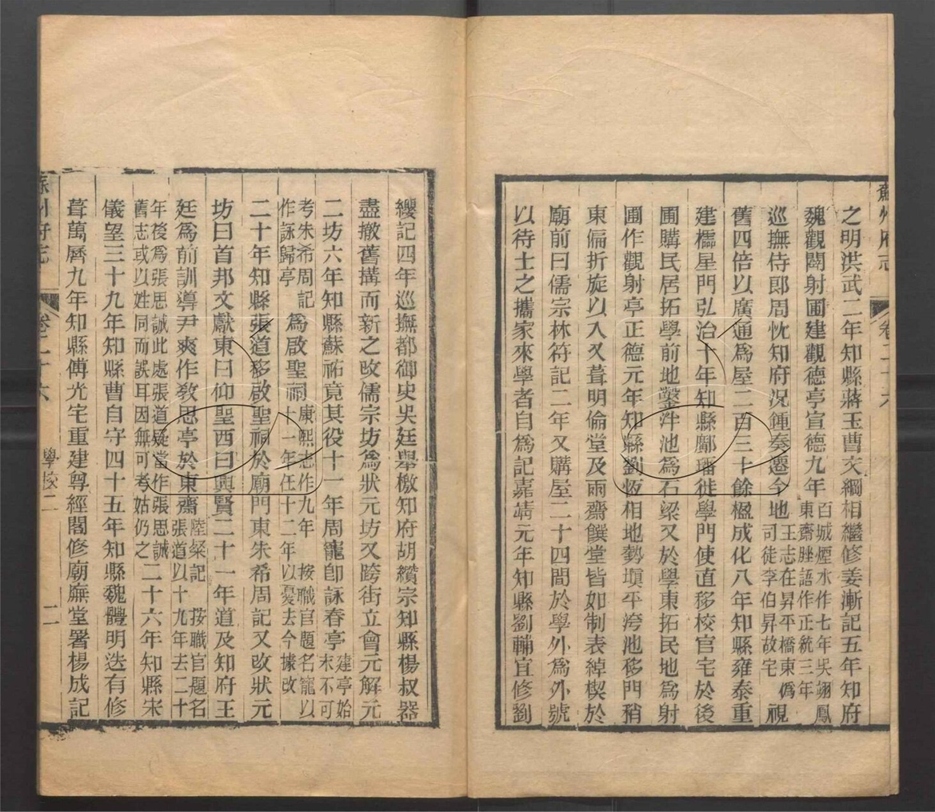 之明洪武二年知縣蔣玉曹文綱相繼修姜漸記五年知府
魏觀闢射圃建觀德亭宣德九年百城煙水作七年吳翊鳳東齋脞語作正統三年
巡撫侍郎周忱知府况鍾奏遷今地王志在昇平橋東僞司徒李伯昇故宅視
舊四倍以廣通爲屋二百三十餘楹成化八年知縣雍泰重
建櫺星門弘治十年知縣鄺璠徙學門使直移校官宅於後
圃購民居拓學前地鑿泮池爲石梁又於學東拓民地爲射
圃作觀射亭正德元年知縣劉恆相地勢塡平洿池移門稍
東偏折旋以入又葺明倫堂及兩齋饌堂皆如制表綽楔於
廟前曰儒宗林符記二年又購屋二十四間於學外爲外號
以待士之攜家來學者自爲記嘉靖元年知縣劉輔宜修劉
纓記四年巡撫都御史吳廷舉檄知府胡纘宗知縣楊叔器
盡撤舊搆而新之改儒宗坊爲狀元坊又跨街立會元解元
二坊六年知縣蘇祐竟其役十一年周寵卽詠春亭建亭始末不可
考朱希周記作詠歸亭爲啟聖祠康熙志作九年 按職官題名寵以十一年任十二年以憂去今據改
二十年知縣張道移啟聖祠於廟門東朱希周記又改狀元
坊曰首邦文獻東曰仰聖西曰興賢二十一年道及知府王
廷爲前訓導尹爽作敎思亭於東齋陸粲記 按職官題名張道以十九年去二十
年後爲張思誠此處張道疑當作張思誠舊志或以姓同而誤耳因無可考姑仍之二十六年知縣宋
儀望三十九年知縣曹自守四十五年知縣魏體明迭有修
葺萬曆九年知縣傅光宅重建尊經閣修廟廡堂署楊成記
蘇州府志
卷二十六
學校二
二